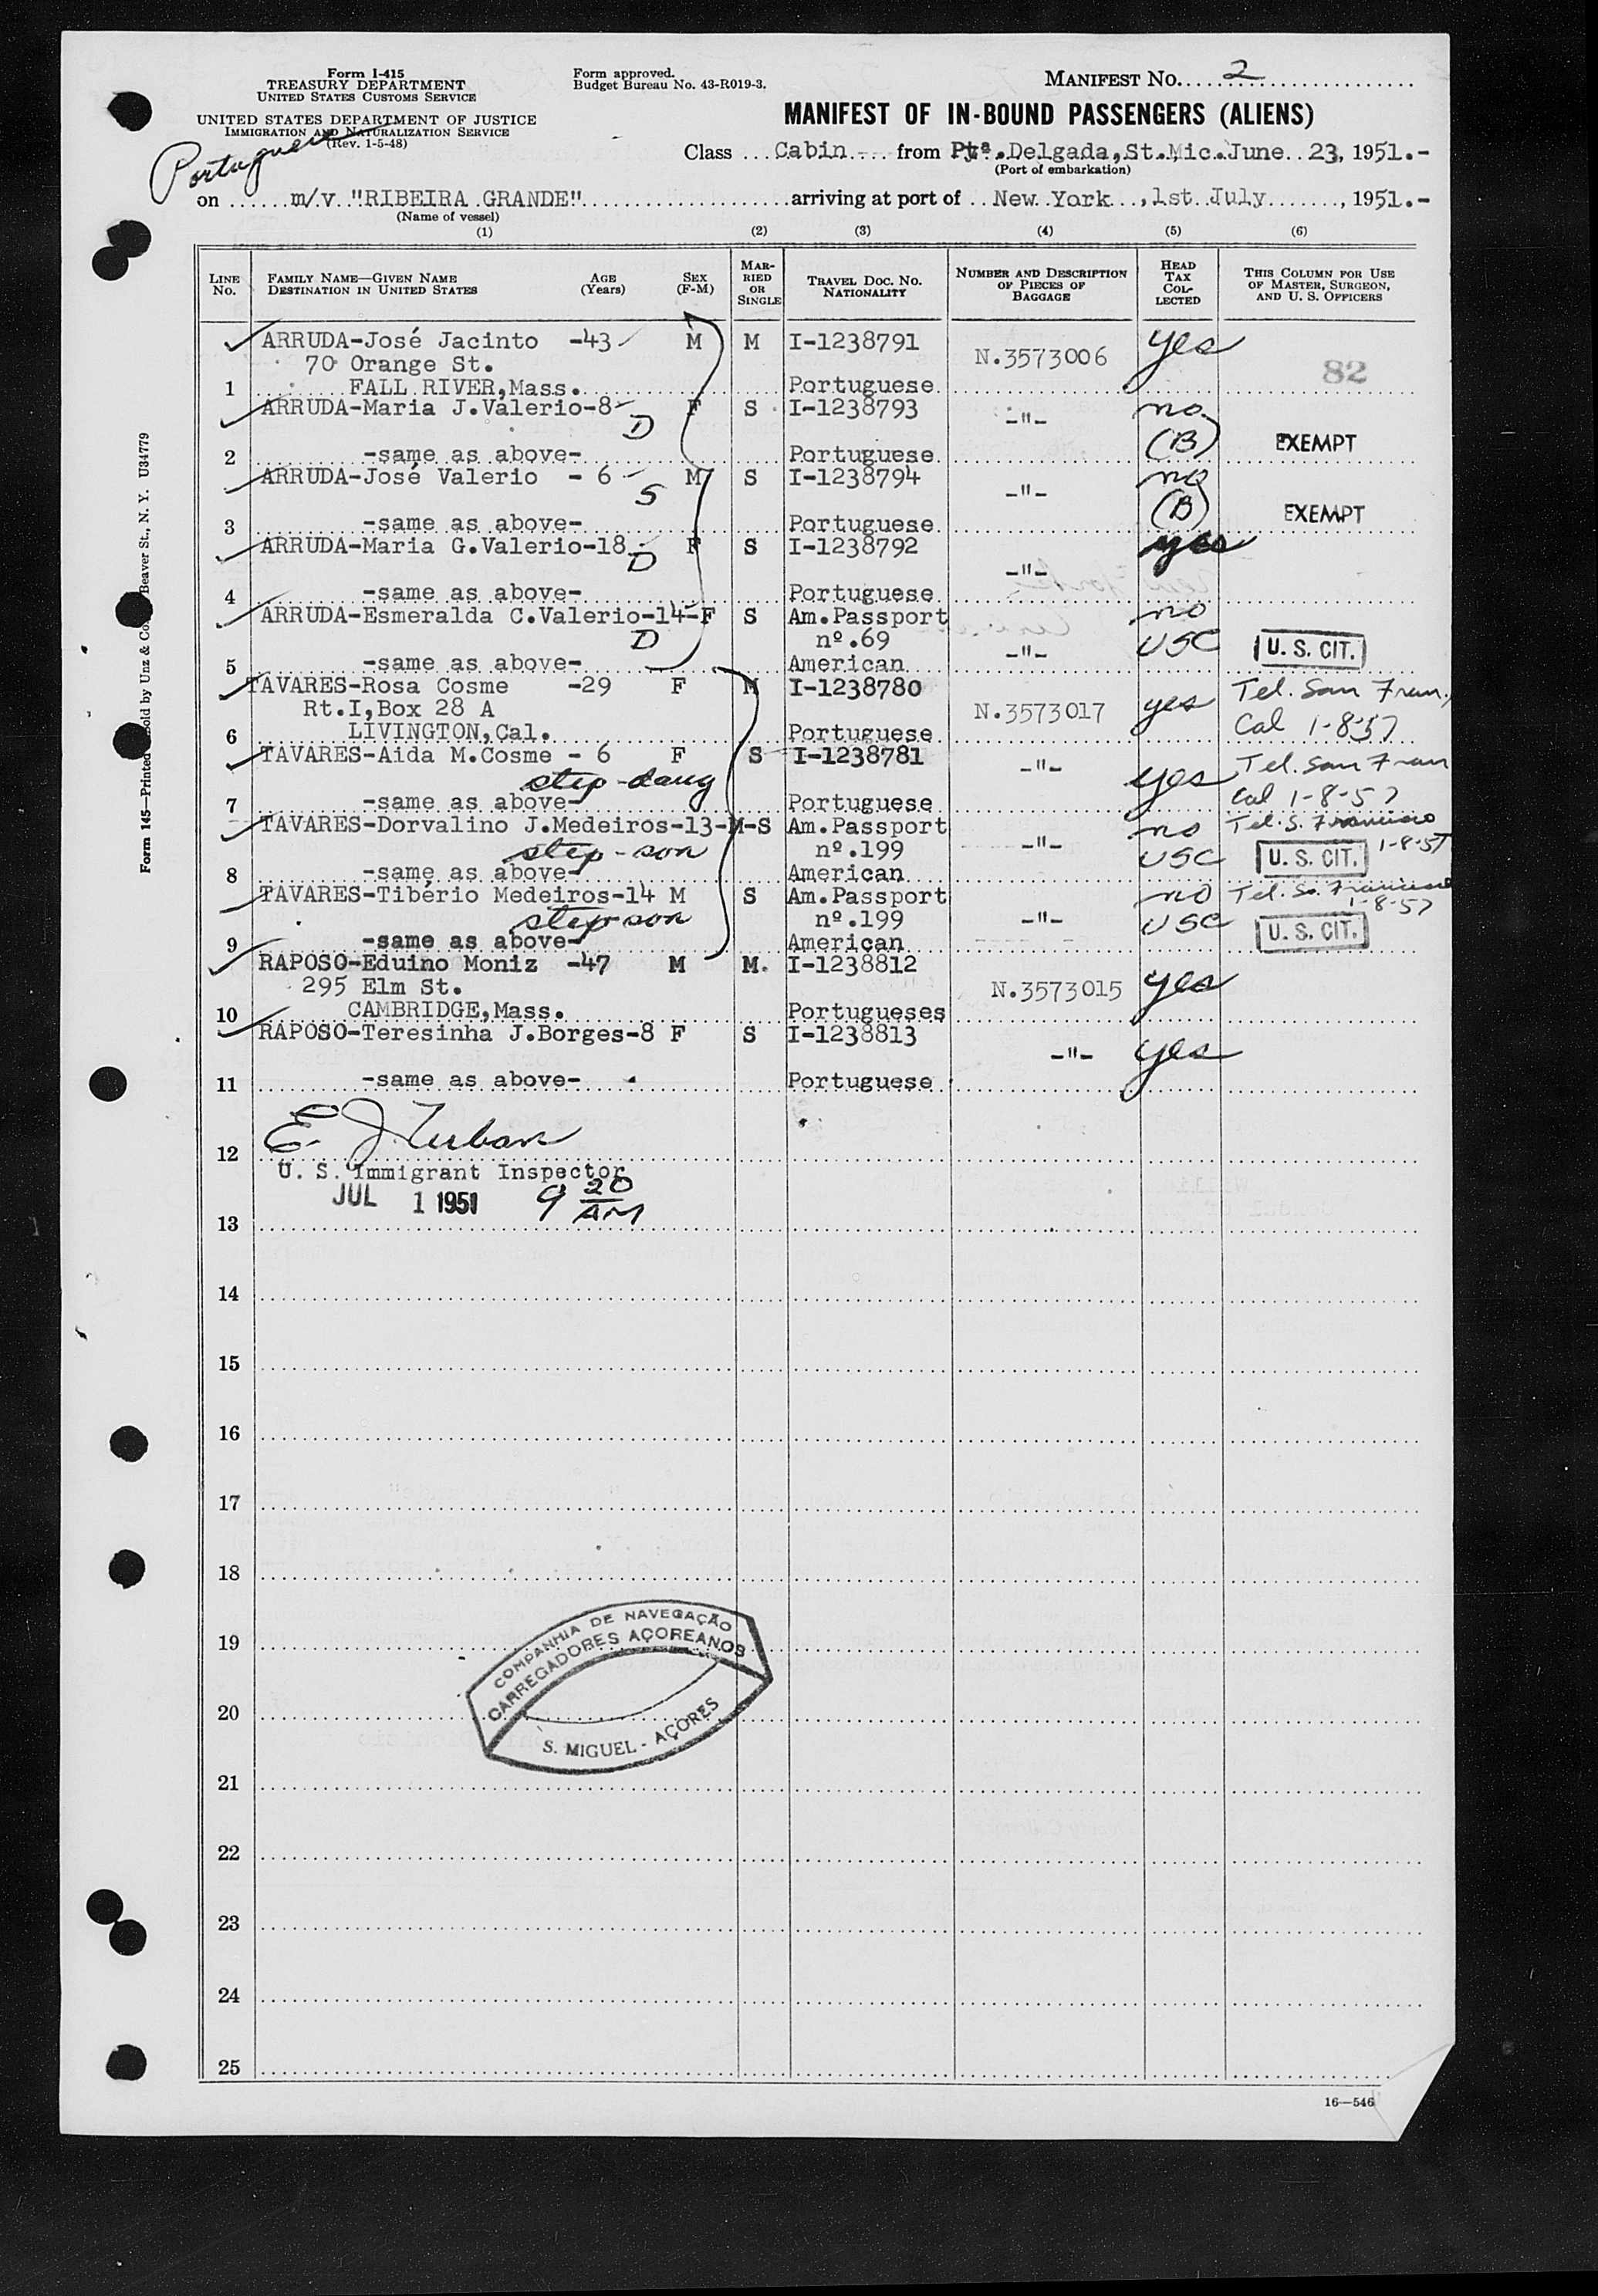 Form I-415
TREASURY DEPARTMENT
UNITED STATES CUSTOMS SERVICE
UNITED STATES DEPARTMENT OF JUSTICE
IMMIGRATION AND NATURALIZATION SERVICE
(Rev. 1-5-48)
Form approved.
Budget Bureau No. 43-R019-3.
MANIFEST NO. 2
MANIFEST OF IN-BOUND PASSENGERS (ALIENS)
Portuguese
Class Cabin from Ptª.Delgada,St.Mic.June 23, 1951.-
(Port of embarkation)
on m/v "RIBEIRA GRANDE" arriving at port of New York, 1st July, 1951.-
(Name of vessel)
(1) (2) (3) (4) (5) (6)
LINE NO. FAMILY NAME—GIVEN NAME DESTINATION IN UNITED STATES AGE (Years) SEX (F-M) MARRIED OR SINGLE TRAVEL DOC. NO. NATIONALITY NUMBER AND DESCRIPTION OF PIECES OF BAGGAGE HEAD TAX COLLECTED THIS COLUMN FOR USE OF MASTER, SURGEON, AND U. S. OFFICERS
ARRUDA-José Jacinto -43 M M I-1238791 N.3573006 yes
70 Orange St. 82
1 FALL RIVER,Mass. Portuguese
ARRUDA-Maria J.Valerio-8 F S I-1238793 -"- no
D (B) EXEMPT
2 -same as above- Portuguese
ARRUDA-José Valerio - 6 M S I-1238794 -"- no
S (B) EXEMPT
3 -same as above- Portuguese
ARRUDA-Maria G.Valerio-18 F S I-1238792 yes
D -"-
4 -same as above- Portuguese
ARRUDA-Esmeralda C.Valerio-14-F S Am.Passport no
D nº.69 -"- USC U. S. CIT.
5 -same as above- American
TAVARES-Rosa Cosme -29 F M I-1238780 yes Tel. San Fran.,
Rt.I,Box 28 A N.3573017 Cal 1-8-57
6 LIVINGTON,Cal. Portuguese
TAVARES-Aida M.Cosme - 6 F S I-1238781 -"- yes Tel. San Fran
step-daug Cal 1-8-57
7 -same as above- Portuguese
TAVARES-Dorvalino J.Medeiros-13-M-S Am.Passport no Tel. S. Francisco
step-son nº.199 -"- USC U. S. CIT. 1-8-57
8 -same as above- American
TAVARES-Tibério Medeiros-14 M S Am.Passport no Tel. So. Francisco
step-son nº.199 -"- USC 1-8-57 U. S. CIT.
9 -same as above- American
RAPOSO-Eduino Moniz -47 M M. I-1238812 yes
295 Elm St. N.3573015
10 CAMBRIDGE,Mass. Portugueses
RAPOSO-Teresinha J.Borges-8 F S I-1238813 -"- yes
11 -same as above- Portuguese
12 E. J.
U. S. Immigrant Inspector
JUL 1 1951 9 20 AM
13
14
15
16
17
18
19
20
21
22
23
24
25
COMPANHIA DE NAVEGAÇÃO
CARREGADORES AÇOREANOS
S. MIGUEL - AÇORES
16—546